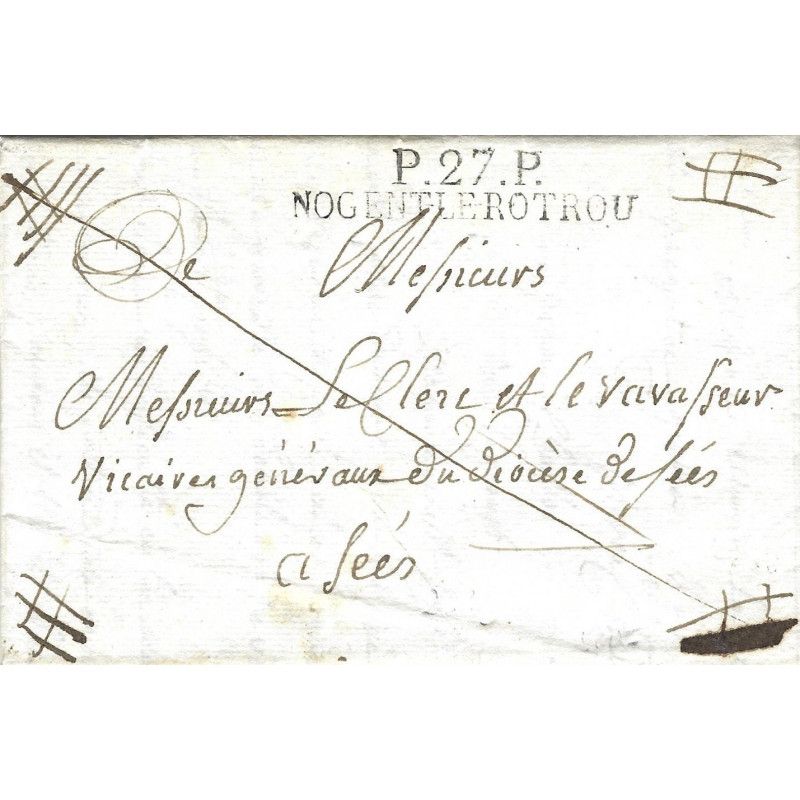 P.27.P.
NOGENT-LE-ROTROU
De Messieurs
Messieurs Le Clerc et le vavasseur
Vicaires généraux du diocèse de séés
a séés